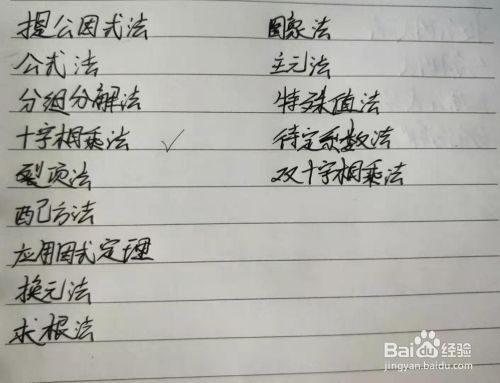 提公因式法
公式法
分组分解法
十字相乘法 ✓
裂项法
配方法
应用因式定理
换元法
求根法
图象法
主元法
特殊值法
待定系数法
双十字相乘法
Baidu经验
jingyan.baidu.com